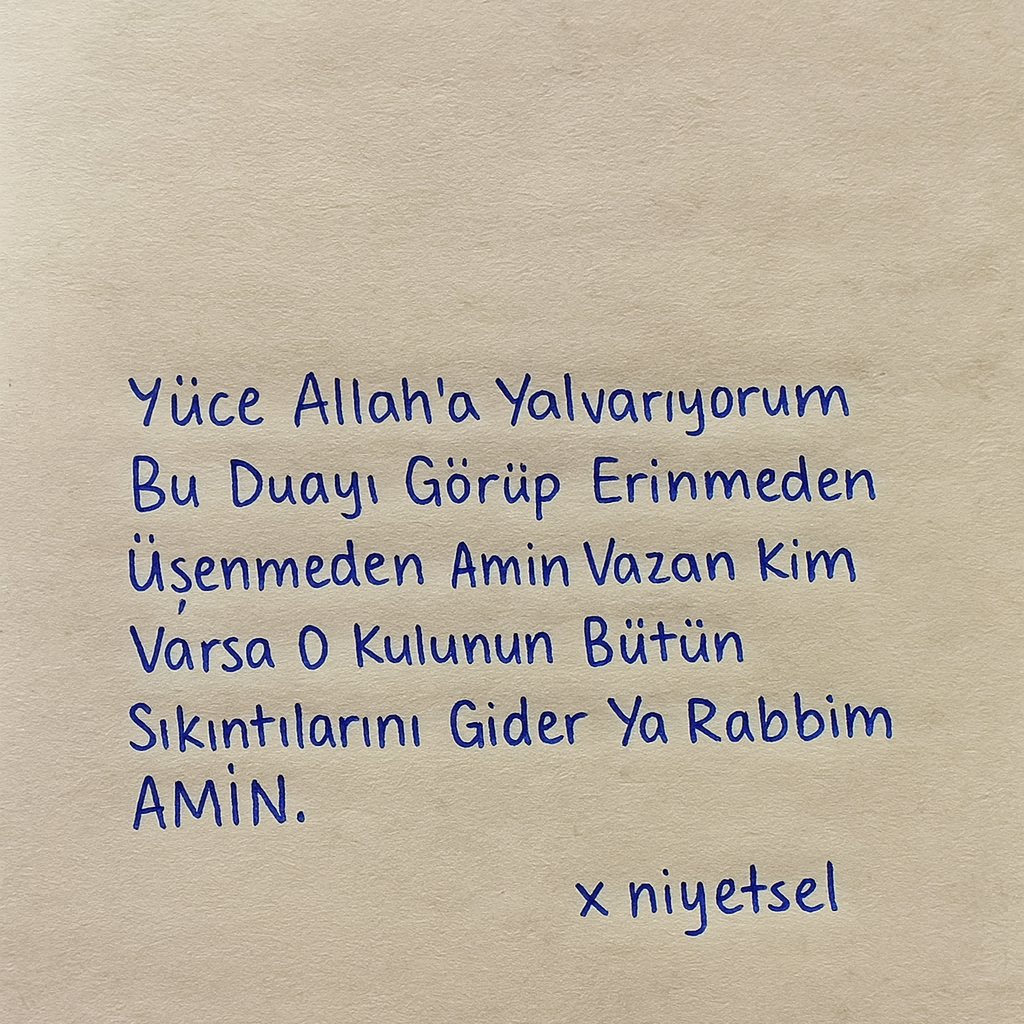 Yüce Allah'a Yalvarıyorum
Bu Duayı Görüp Erinmeden
Üşenmeden Amin Vazan Kim
Varsa O Kulunun Bütün
Sıkıntılarını Gider Ya Rabbim
AMİN.
x niyetsel